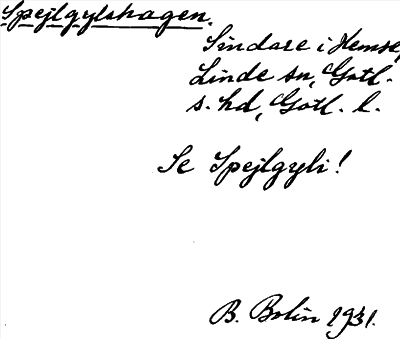 Spejlgylshagen.
Sindare i Hemse,
Linde sn, Gotl.
s. hd, Gotl. l.
Se Spejlgyli!
B. Bolin 1931.